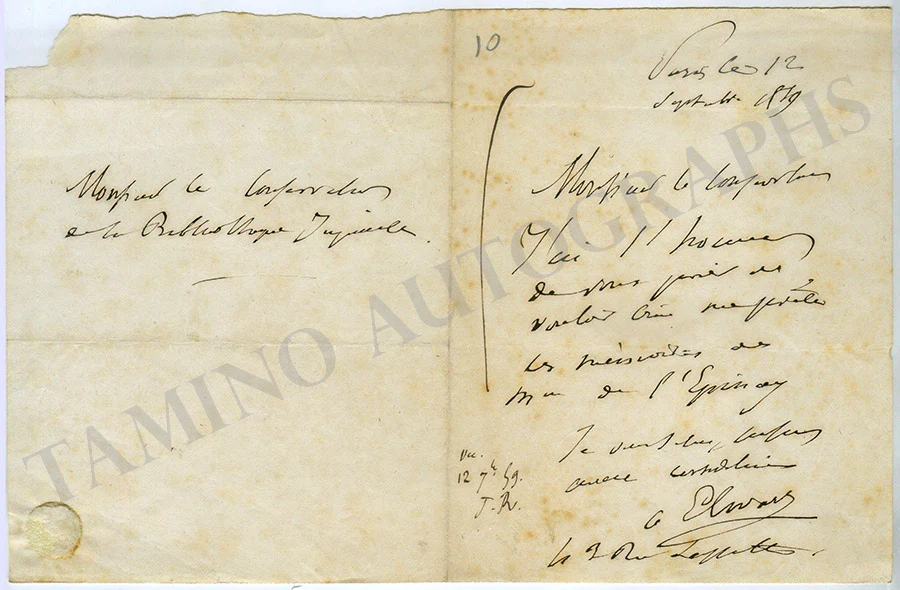 10
Paris le 12
Septembre 1859
Monsieur le Conservateur
de la Bibliothèque Impériale.
Monsieur le Conservateur
J'ai l'honneur
de vous prier de
vouloir bien me prêter
les mémoires de
Mme de l'Epinay
Je vous salue
avec considération
a Elwart
Vu.
12 7bre 59.
J. R.
rue Laffitte.
TAMINO AUTOGRAPHS